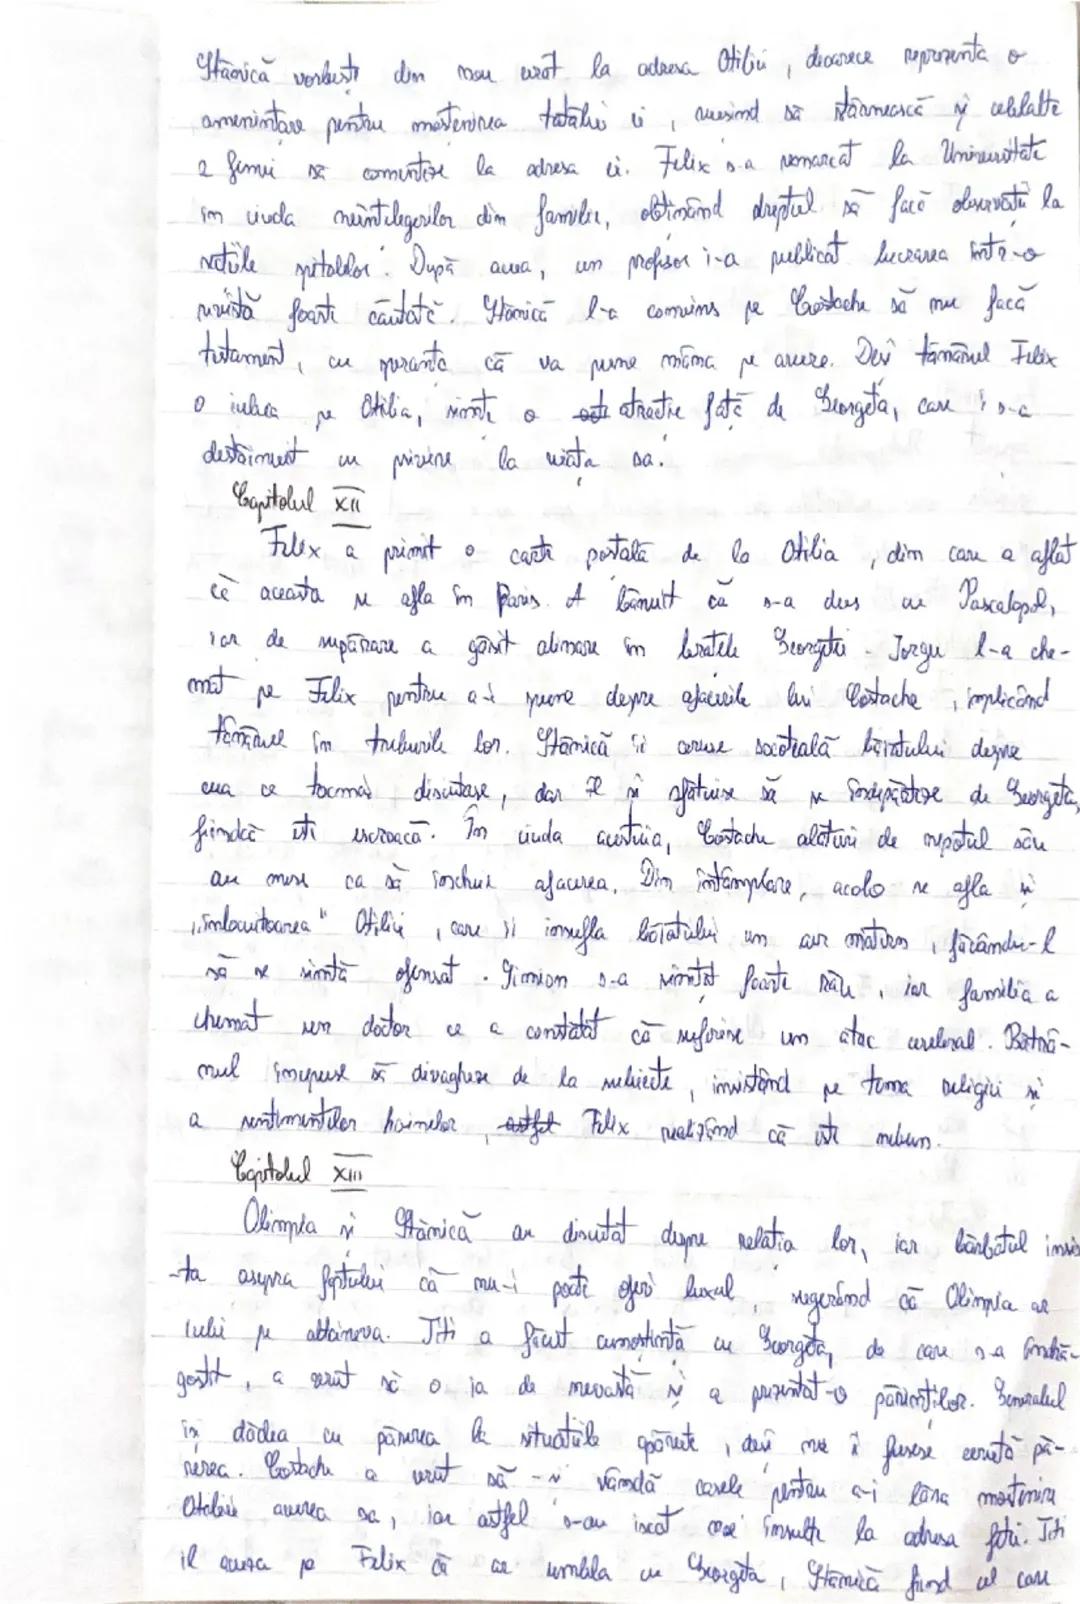 Stănică vorbește din nou urât la adresa Otiliei, deoarece reprezenta o
amenințare pentru moștenirea tatălui ei, reușind să stârnească și celelalte
2 femei să comenteze la adresa ei. Felix s-a remarcat la Universitate
în ciuda neînțelegerilor din familie, obținând dreptul să facă observații la
secțiile spitalelor. După aceea, un profesor i-a publicat lucrarea într-o
revistă foarte căutată. Stănică l-a convins pe Costache să nu facă
testament, cu speranța că va pune mâna pe avere. Deși tânărul Felix
o iubea pe Otilia, simte o atracție față de Georgeta, care i s-a
destăinuit cu privire la viața sa.
Capitolul XII
Felix a primit o carte poștală de la Otilia, din care a aflat
că aceasta se afla în Paris. A bănuit că s-a dus cu Pascalopol,
iar de supărare a găsit alinare în brațele Georgetei. Iorgu l-a che-
mat pe Felix pentru a-i spune despre afacerile lui Costache, implicând
tânărul în treburile lor. Stănică îi ceruse socoteală băiatului despre
ceea ce tocmai discutase, dar îl și sfătuise să se îndepărteze de Georgeta,
fiindcă este escroacă. În ciuda acestuia, Costache alături de nepotul său
au mers ca să încheie afacerea. Din întâmplare, acolo se afla și
"înlocuitoarea" Otiliei, care îi insufla băiatului un aer matern, făcându-l
să se simtă ofensat. Simion s-a simțit foarte rău, iar familia a
chemat un doctor ce a constatat că suferise un atac cerebral. Bătrâ-
nul începuse să divagheze de la subiecte, insistând pe tema religiei și
a sentimentelor hainelor, astfel Felix realizând că este nebun.
Capitolul XIII
Olimpia și Stănică au discutat despre relația lor, iar bărbatul insis-
ta asupra faptului că nu-i poate oferi luxul, sugerând că Olimpia ar
iubi pe altcineva. Titi a făcut cunoștință cu Georgeta, de care s-a îndră-
gostit, a vrut să o ia de nevastă și a prezentat-o părinților. Generalul
își dădea cu părerea la situațiile apărute, deși nu îi fusese cerută pă-
rerea. Costache a vrut să-și vândă casele pentru a-i lăsa moștenire
Otiliei averea sa, iar astfel s-au iscat noi insulte la adresa fetei. Titi
îl acuza pe Felix că ar umbla cu Georgeta, Stănică fiind cel care